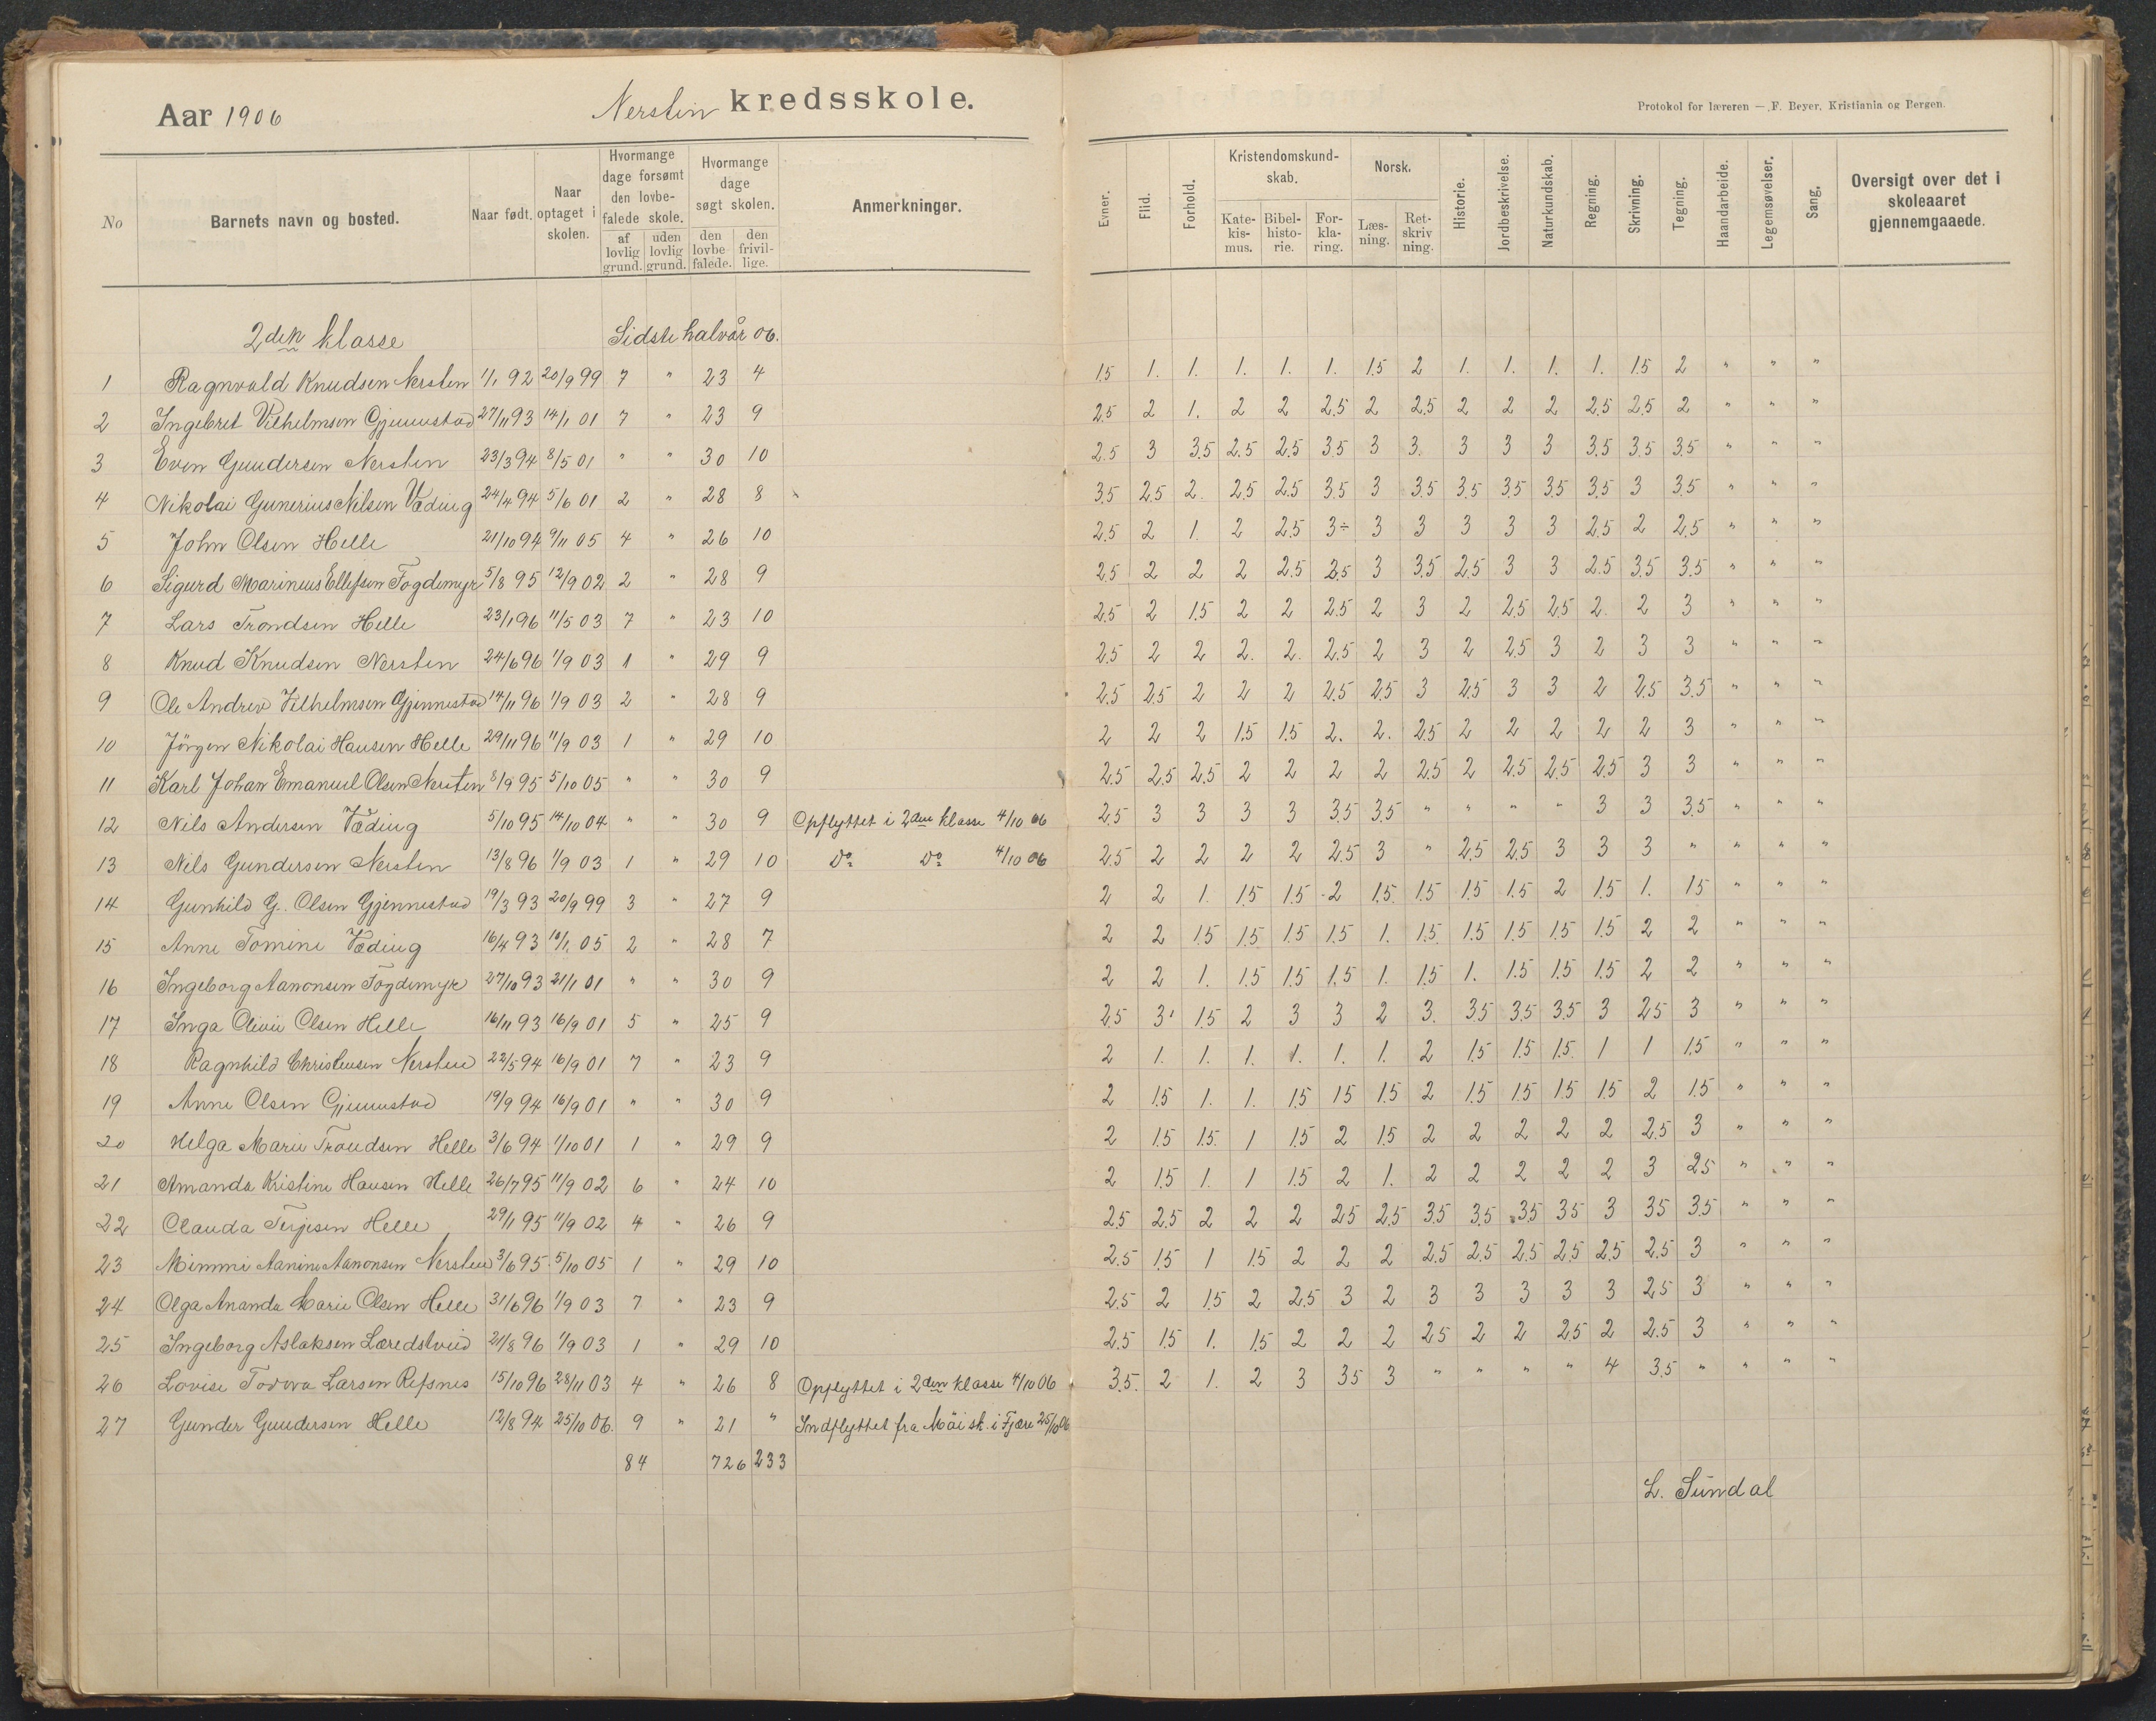 Aar 1906
Nersten kredsskole.
Protokol for læreren — F. Beyer, Kristiania og Bergen.
No | Barnets navn og bosted. | Naar født. | Naar optaget i skolen. | Hvormange dage forsømt den lovbefalede skole. af lovlig grund. | uden lovlig grund. | Hvormange dage søgt skolen. den lovbefalede. | den frivillige. | Anmerkninger. | Evner. | Flid. | Forhold. | Kristendomskundskab. Katekismus. | Bibelhistorie. | Forklaring. | Norsk. Læsning. | Retskrivning. | Historie. | Jordbeskrivelse. | Naturkundskab. | Regning. | Skrivning. | Tegning. | Haandarbeide. | Legemsøvelser. | Sang. | Oversigt over det i skoleaaret gjennemgaaede.
2den klasse Sidste halvår 06.
1 Ragnvald Knudsen Nersten 1/1 92 20/9 99 7 " 23 4 | 1.5 1. 1. 1. 1. 1. 1.5 2 1. 1. 1. 1. 1.5 2 " " "
2 Ingebret Vilhelmsen Gjennestad 27/11 93 14/1 01 7 " 23 9 | 2.5 2 1. 2 2 2.5 2 2.5 2 2 2 2.5 2.5 2 " " "
3 Even Gundersen Nersten 23/3 94 8/5 01 " " 30 10 | 2.5 3 3.5 2.5 2.5 3.5 3 3. 3 3 3 3.5 3.5 3.5 " " "
4 Nikolai Gunerius Nilsen Væding 24/4 94 5/6 01 2 " 28 8 " | 3.5 2.5 2. 2.5 2.5 3.5 3 3.5 3.5 3.5 3.5 3.5 3 3.5 " " "
5 John Olsen Helle 21/10 94 9/11 05 4 " 26 10 | 2.5 2 1. 2 2.5 3÷ 3 3 3 3 3 2.5 2 2.5 " " "
6 Sigurd Marinius Ellefsen Fogdemyr 5/8 95 12/9 02 2 " 28 9 | 2.5 2 2 2 2.5 2.5 3 3.5 2.5 3 3 2.5 3.5 3.5 " " "
7 Lars Trondsen Helle 23/1 96 11/5 03 7 " 23 10 | 2.5 2 1.5 2 2 2.5 2 3 2 2.5 2.5 2. 2 3 " " "
8 Knud Knudsen Nersten 24/6 96 1/9 03 1 " 29 9 | 2.5 2 2 2. 2. 2.5 2 3 2 2.5 3 2 3 3 " " "
9 Ole Andrev Vilhelmsen Gjennestad 14/11 96 1/9 03 2 28 9 | 2.5 2.5 2 2 2 2.5 2.5 3 2.5 3 3 2 2.5 3.5 " " "
10 Jörgen Nikolai Hansen Helle 29/11 96 11/9 03 1 " 29 10 | 2 2 2 1.5 1.5 2. 2. 2.5 2 2 2 2 2 3 " " "
11 Karl Johan Emanuel Olsen Nersten 8/9 95 5/10 05 " " 30 9 | 2.5 2.5 2.5 2 2 2 2 2.5 2 2.5 2.5 2.5 3 3 " " "
12 Nils Andersen Væding 5/10 95 14/10 04 " " 30 9 Opflyttet i 2den klasse 4/10 06 | 2.5 3 3 3 3 3.5 3.5 " " " " 3 3 3.5 " " "
13 Nils Gundersen Nersten 13/8 96 1/9 03 1 " 29 10 Do Do 4/10 06 | 2.5 2 2 2 2 2.5 3 " 2.5 2.5 3 3 3 " " " "
14 Gunhild G. Olsen Gjennestad 19/3 93 20/9 99 3 " 27 9 | 2 2 1. 1.5 1.5 2 1.5 1.5 1.5 1.5 2 1.5 1. 1.5 " " "
15 Anne Tomine Væding 16/4 93 10/1 05 2 " 28 7 | 2 2 1.5 1.5 1.5 1.5 1. 1.5 1.5 1.5 1.5 1.5 2 2 " " "
16 Ingeborg Aanonsen Fogdemyr 27/10 93 21/1 01 " " 30 9 | 2 2 1. 1.5 1.5 1.5 1. 1.5 1. 1.5 1.5 1.5 2 2 " " "
17 Inga Olivie Olsen Helle 16/11 93 16/9 01 5 " 25 9 | 2.5 3 1.5 2 3 3 2 3. 3.5 3.5 3.5 3 2.5 3 " " "
18 Ragnhild Christensen Nersten 22/5 94 16/9 01 7 " 23 9 | 2 1. 1. 1. 1. 1. 1. 2 1.5 1.5 1.5 1 1 1.5 " " "
19 Anne Olsen Gjennestad 19/9 94 16/9 01 " " 30 9 | 2 1.5 1. 1. 1.5 1.5 1.5 2 1.5 1.5 1.5 1.5 2 1.5 " " "
20 Helga Marie Trondsen Helle 3/6 94 1/10 01 1 " 29 9 | 2 1.5 1.5 1 1.5 2 1.5 2 2 2 2 2 2.5 3 " " "
21 Amanda Kristine Hansen Helle 26/7 95 11/9 02 6 " 24 10 | 2 1.5 1. 1 1.5 2 1. 2 2 2 2 2 3 2.5 " " "
22 Clauda Terjesen Helle 29/1 95 11/9 02 4 " 26 9 | 2.5 2.5 2 2 2 2.5 2.5 3.5 3.5 3.5 3.5 3 3.5 3.5 " " "
23 Mimmi Aanine Aanonsen Nersten 3/6 95 5/10 05 1 " 29 10 | 2.5 1.5 1 1.5 2 2 2 2.5 2.5 2.5 2.5 2.5 2.5 3 " " "
24 Olga Ananda Marie Olsen Helle 31/6 96 1/9 03 7 " 23 9 | 2.5 2 1.5 2 2.5 3 2 3 3 3 3 3 2.5 3 " " "
25 Ingeborg Aslaksen Læredstveid 21/8 96 1/9 03 1 " 29 10 | 2.5 1.5 1. 1.5 2 2 2 2.5 2 2 2.5 2 2.5 3 " " "
26 Lovise Larsen Refsnes 15/10 96 28/11 03 4 " 26 8 Opflyttet i 2den klasse 4/10 06 | 3.5 2 1. 2 3 3.5 3 " " " " 4 3.5 " " " "
27 Gunder Gundersen Helle 12/8 94 25/10 06. 9 " 21 " Indflyttet fra Möi sk. i Fjære 25/10 06
84 726 233
L. Sundal